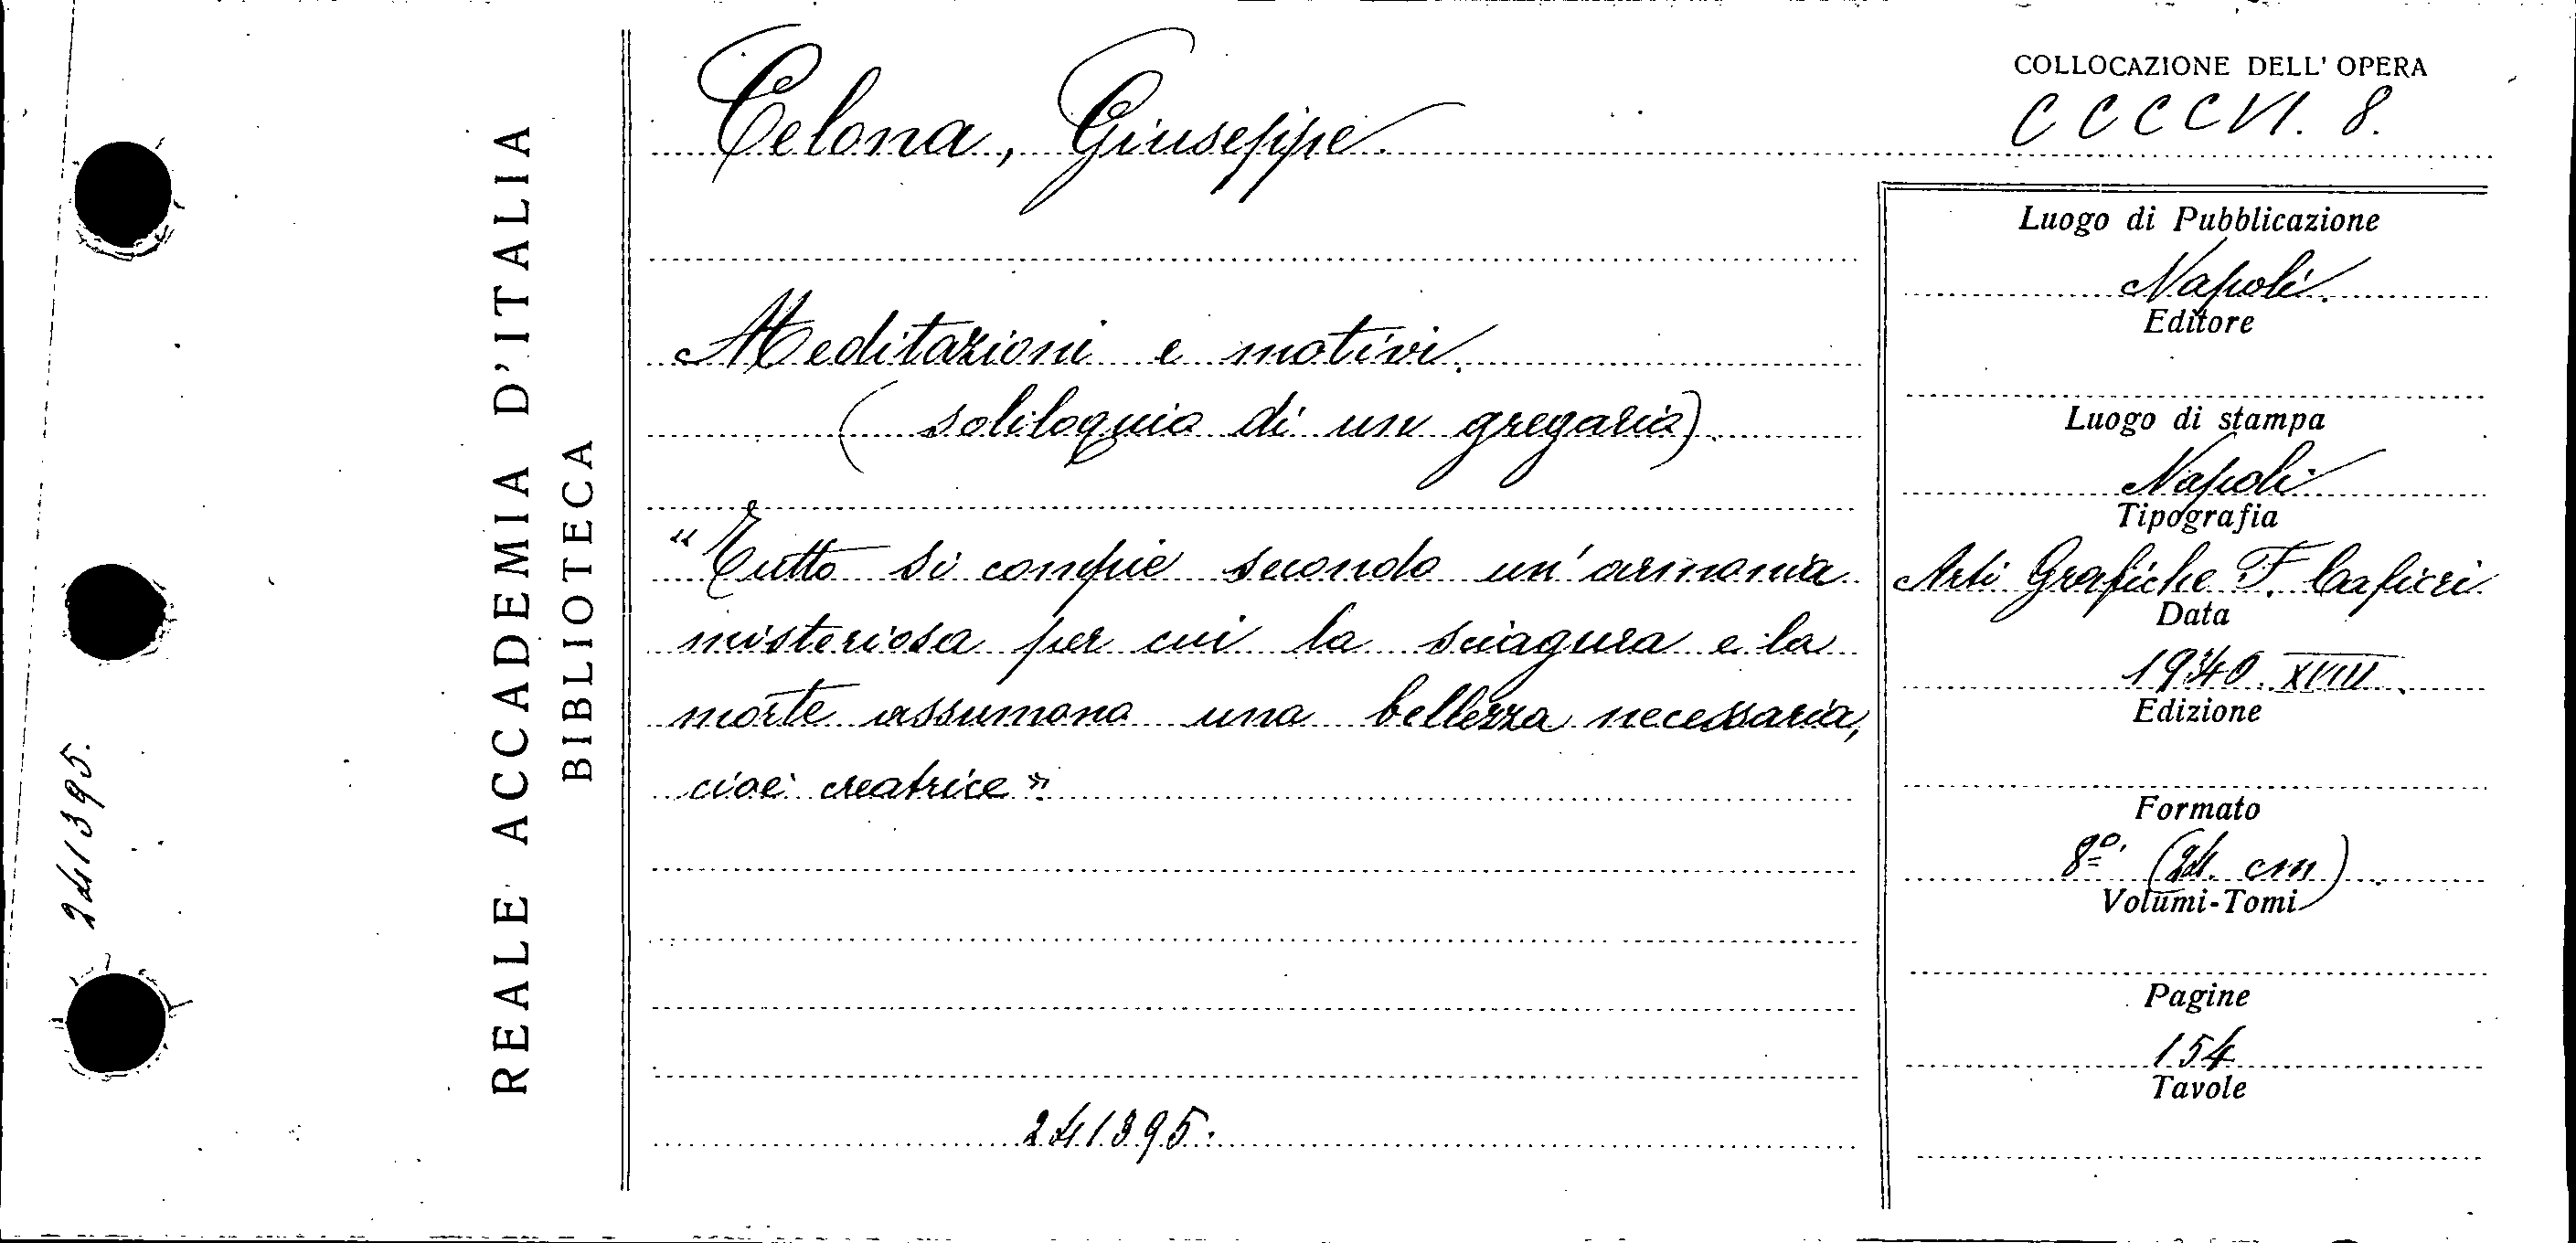 241395.
REALE ACCADEMIA D'ITALIA
BIBLIOTECA
Celona, Giuseppe.
Meditazioni e motivi.
(soliloquio di un gregario).
"Tutto si compie secondo un'armonia
misteriosa per cui la sciagura e la
morte assumono una bellezza necessaria,
cioè creatrice"
241395.
COLLOCAZIONE DELL'OPERA
CCCCVI. 8.
Luogo di Pubblicazione
Napoli.
Editore
Luogo di stampa
Napoli
Tipografia
Arti Grafiche F. Cafieri
Data
1940. XVIII.
Edizione
Formato
8º. (24. cm).
Volumi-Tomi
Pagine
154
Tavole